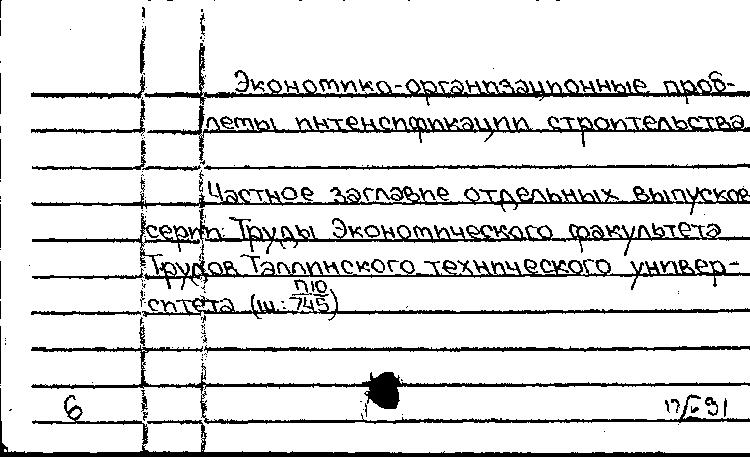 Экономико-организационные проб-
лемы интенсификации строительства
Частное заглавие отдельных выпусков
серии: Труды Экономического факультета
Трудов Таллинского технического универ-
ситета (ш: П10/745)
6